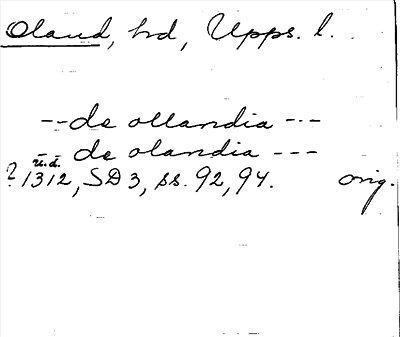 Oland, hd, Upps. l.
--de ollandia ---
-- de olandia ---
u.d.
? 1312, SD 3, ss. 92, 94. orig.